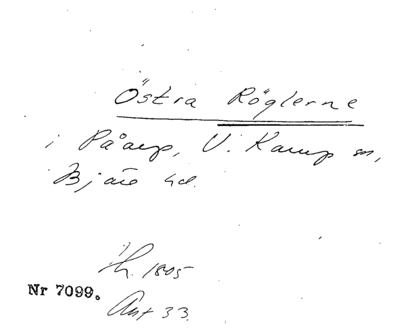 Östra Röglerne
i Påarp, V. Karup sn,
Bjäre hd.
1805
Nr 7099.
Akt 33.